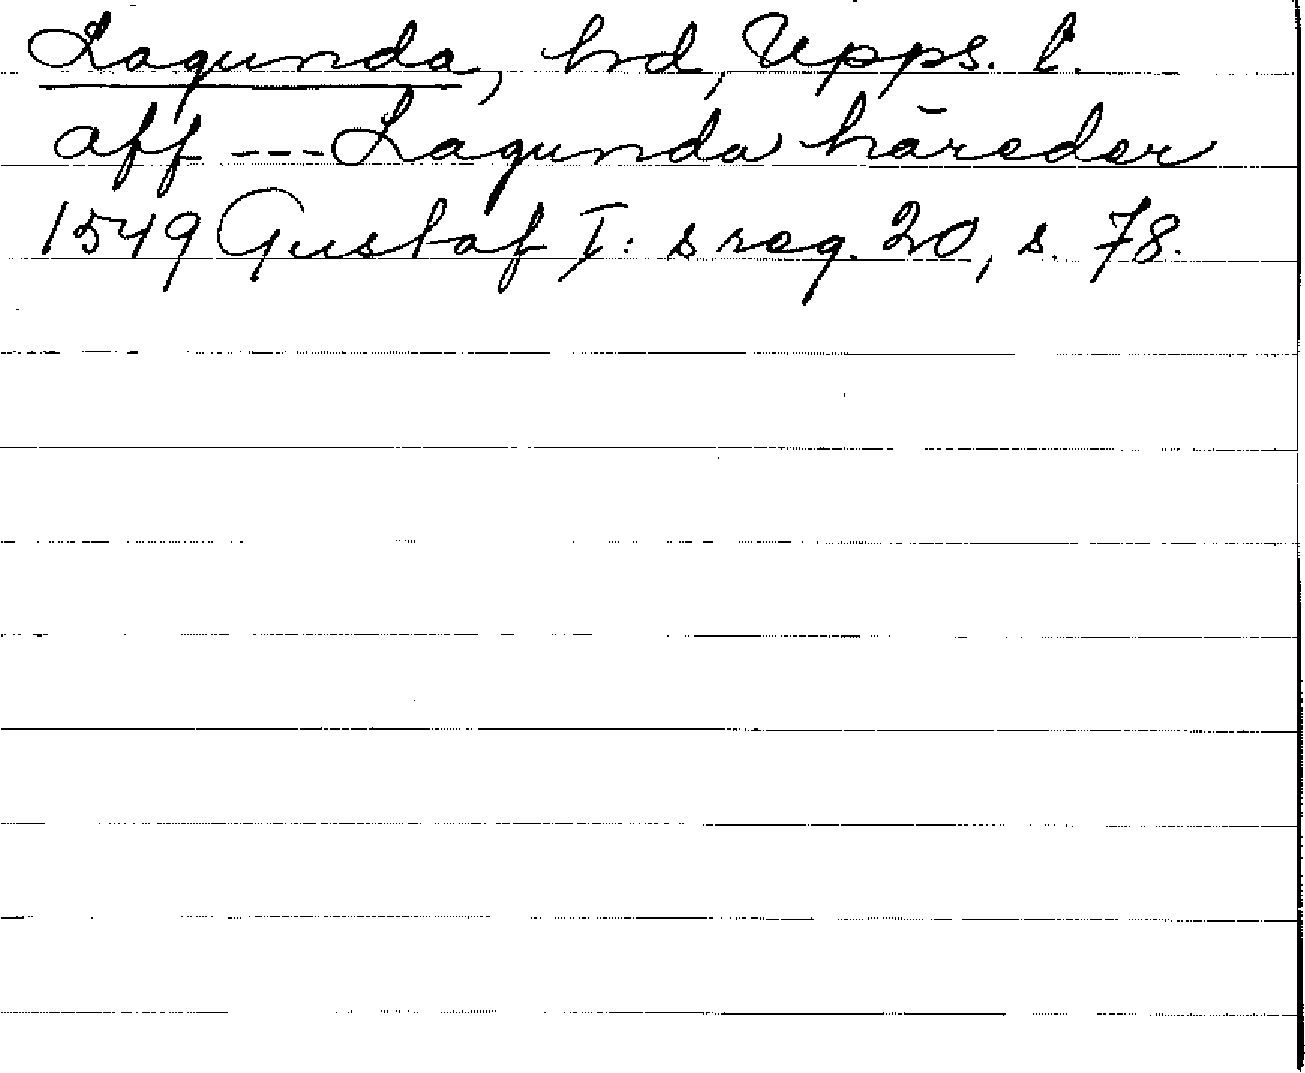 Lagunda, hd, Upps. l.
aff --- Lagunda häreder
1549 Gustaf I:s reg. 20, s. 78.